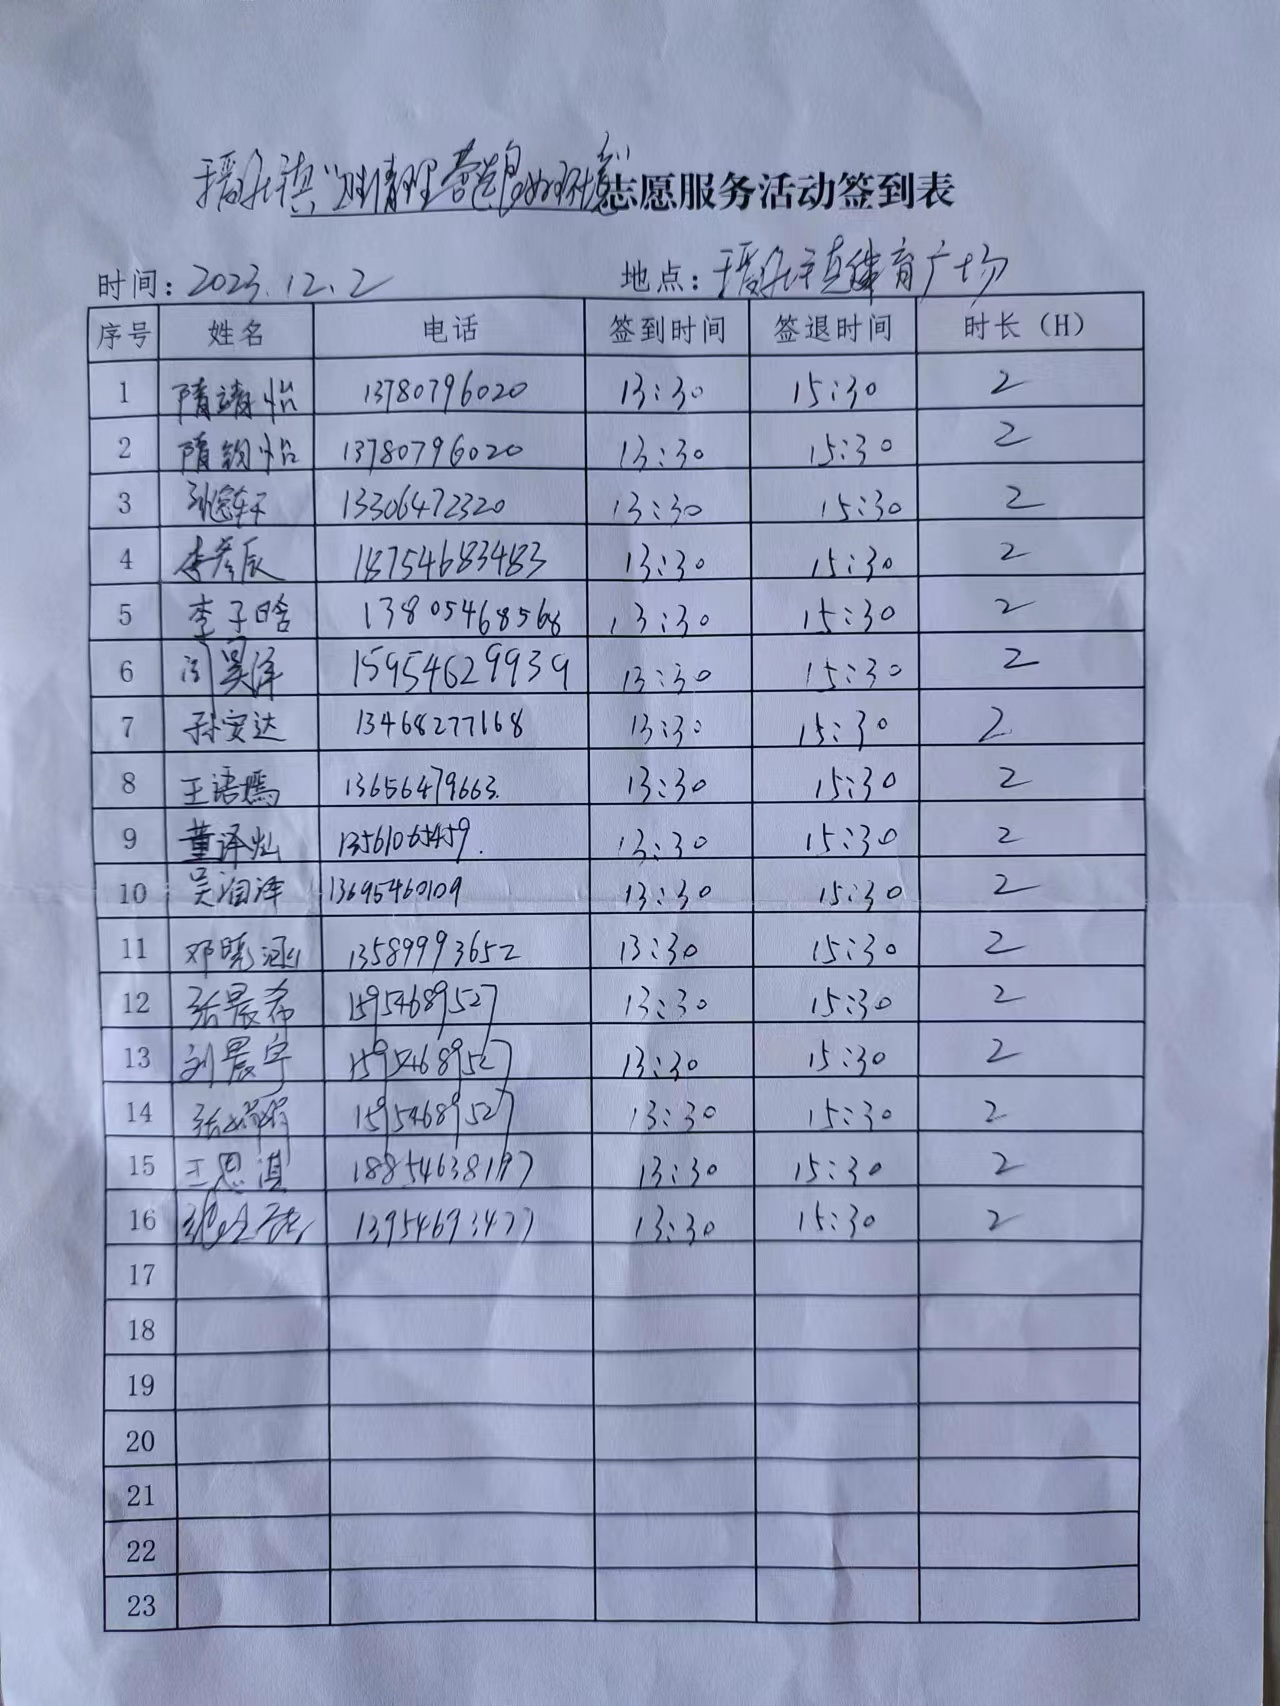 志愿服务活动签到表
时间：2023.12.2 地点：镇体育广场
序号 姓名 电话 签到时间 签退时间 时长（H）
1 隋靖怡 13780796020 13:30 15:30 2
2 隋钧怡 13780796020 13:30 15:30 2
3 13306472320 13:30 15:30 2
4 李彦辰 18754683483 13:30 15:30 2
5 李子晗 13805468568 13:30 15:30 2
6 昊泽 15954629939 13:30 15:30 2
7 孙安达 13468277168 13:30 15:30 2
8 王语嫣 13656479663. 13:30 15:30 2
9 董泽灿 13561065459. 13:30 15:30 2
10 吴润泽 13695460109 13:30 15:30 2
11 邓晓涵 13589993652 13:30 15:30 2
12 张晨希 15954689527 13:30 15:30 2
13 刘晨宇 15954689527 13:30 15:30 2
14 15954689527 13:30 15:30 2
15 王思淇 18854638197 13:30 15:30 2
16 13954693477 13:30 15:30 2
17
18
19
20
21
22
23